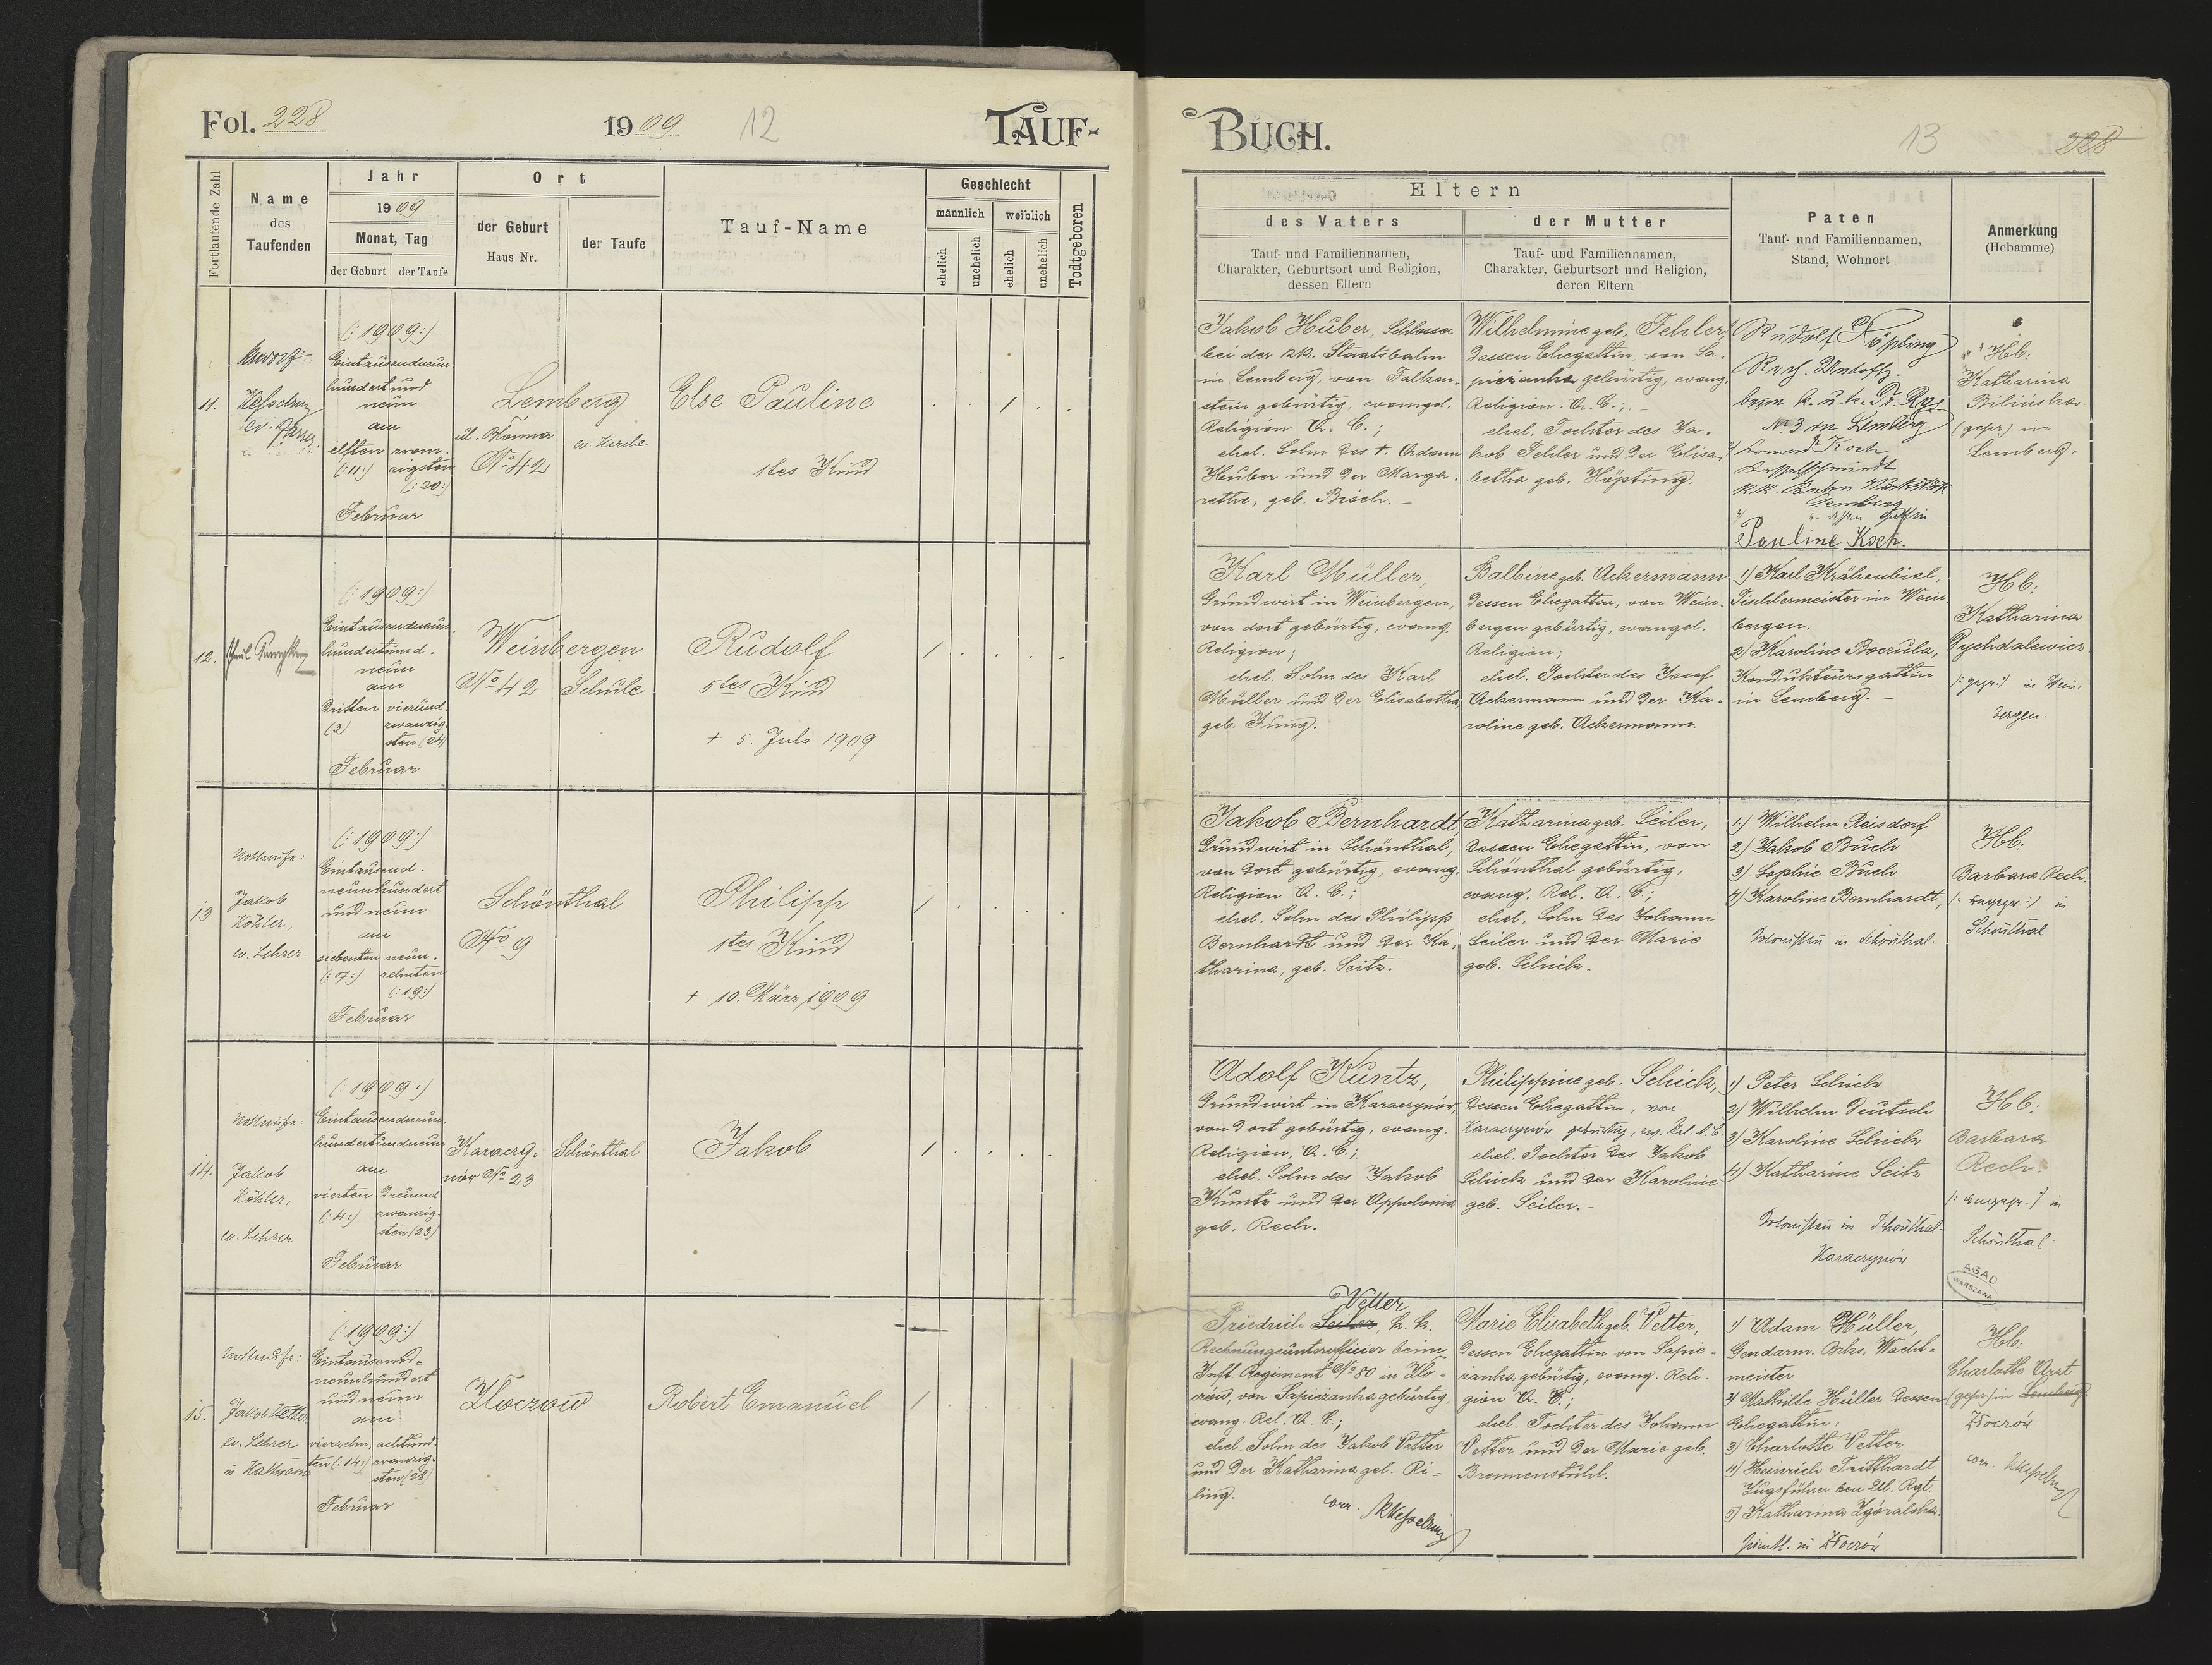 Fol. 228
1909
12
TAUF-
Fortlaufende Zahl
Name
des
Taufenden
Jahr
1909
Monat, Tag
der Geburt
der Taufe
Ort
der Geburt
Haus Nr.
der Taufe
Tauf-Name
Geschlecht
männlich
weiblich
ehelich
unehelich
ehelich
unehelich
Todtgeboren
11.
(: 1909 :)
Eintausendneun
hundert und
neun
am
elften zwan-
(: 11 :) zigsten
(: 20 :)
Februar
Lemberg
No 42
ev. Kirche
Else Pauline
1tes Kind
12.
(: 1909 :)
Eintausendneun
hundertund
neun
am
Dritten vierund
(3) zwanzig
sten (24)
Februar
Weinbergen
No 42 Schule
Rudolf
5tes Kind
+ 5. Juli 1909
13
Nottaufe:
Jakob
Köhler,
ev. Lehrer
(: 1909 :)
Eintausend-
neunhundert
und neun
am
siebenten neun-
(: 07 :) zehnten
(: 19 :)
Februar
Schönthal
No 9
Philipp
1tes Kind
+ 10. März 1909
14.
Nottaufe:
Jakob
Köhler,
ev. Lehrer
(: 1909 :)
Eintausendneun-
hundertundneun
am
vierten dreiund
(: 4 :) zwanzig-
sten (23)
Februar
Karaczy-
nów No 23
Schönthal
Jakob
15.
Nottaufe:
Jakob Vetter
ev. Lehrer
(: 1909 :)
Eintausend-
neunhundert
und neun
am
vierzehn- achtund-
ten (: 14 :) zwanzig-
sten (28)
Februar
Zloczow
Robert Emanuel
BUCH.
13
228
Eltern
des Vaters
Tauf- und Familiennamen,
Charakter, Geburtsort und Religion,
dessen Eltern
der Mutter
Tauf- und Familiennamen,
Charakter, Geburtsort und Religion,
deren Eltern
Paten
Tauf- und Familiennamen,
Stand, Wohnort
Anmerkung
(Hebamme)
Jakob Huber, Schlosser
bei der k.k. Staatsbahn
in Lemberg, von Falken-
stein gebürtig, evangel.
Religion A. C.;
ehel. Sohn des +. Adam
Heuber und der Marga-
rethe, geb. Bisch. -
Wilhelmine geb. Fehler
dessen Ehegattin, von Sa-
piezanka gebürtig, evang.
Religion A. C.; -
ehel. Tochter des Ja-
kob Fehler und der Elisa-
betha geb. Höpfing.
Rudolf Köpfing
No 3 in Lemberg
Konrad Koch
Lemberg
Pauline Koch.
Hb:
Katharina
(gepr.) in
Lemberg.
Karl Müller,
Grundwirt in Weinbergen,
von dort gebürtig, evang.
Religion;
ehel. Sohn des Karl
Müller und der Elisabetha,
geb. Jung.
Balbine geb. Ackermann
dessen Ehegattin, von Wein-
bergen gebürtig, evangel.
Religion;
ehel. Tochter des Josef
Ackermann und der Ka-
roline geb. Ackermann.
1) Karl Krähenbiel,
Tischlermeister in Wein
bergen.
2) Karoline Boczula,
Kondukteursgattin
in Lemberg. -
Hb:
Katharina
Rychdalewicz
(: gepr. :) in Wein-
bergen.
Jakob Bernhardt,
Grundwirt in Schönthal,
von dort gebürtig, evang.
Religion A. C.;
ehel. Sohn des Philipp
Bernhardt und der Ka-
tharina, geb. Seitz.
Katharina geb. Seiler,
dessen Ehegattin, von
Schönthal gebürtig,
evang. Rel. A. C.;
ehel. Sohn des Johann
Seiler und der Marie
geb. Schick.
1) Wilhelm Reisdorf
2) Jakob Buch
3) Sophie Buch
4) Karoline Bernhardt,
Kolonisten in Schönthal.
Hb.
Barbara Rech
(: ungepr. :) in
Schönthal
Adolf Kuntz,
Grundwirt in Karaczynów,
von dort gebürtig, evang.
Religion, A. C.;
ehel. Sohn des Jakob
Kuntz und der Appolonia
geb. Rech.
Philippine geb. Schick,
dessen Ehegattin, von
Karaczynów gebürtig, ev. Rel. A. C.
ehel. Tochter des Jakob
Schick und der Karoline
geb. Seiler. -
1) Peter Schick
2) Wilhelm Deutsch
3) Karoline Schick
4) Katharine Seitz
Kolonisten in Schönthal
Karaczynów
Hb:
Barbara
Rech.
(: ungepr. :) in
Schönthal
AGAD
WARSZAWA
Vetter
Friedrich Seiler, k. k.
Rechnungsunterofficier beim
Inft. Regiment No 80 in Zlo-
czow, von Sapiezanka gebürtig,
evang. Rel. A. C.;
ehel. Sohn des Jakob Vetter
und der Katharina geb. Ri-
ling.
corr. Kesselring
Marie Elisabeth geb. Vetter,
dessen Ehegattin von Sapie-
zanka gebürtig, evang. Reli-
gion A. C.;
ehel. Tochter des Johann
Vetter und der Marie geb.
Brennenstuhl.
1) Adam Hüller,
Gendarm. Bzks. Wacht-
meister
2) Mathilde Hüller dessen
Ehegattin,
3) Charlotte Vetter
4) Heinrich Tritthardt
Zugsführer
5) Katharina Zgóralska.
sämtl. in Złoczów
Hb:
Charlotte Arzt
(gepr.) in Lemberg
Złoczów
corr. Kesselring